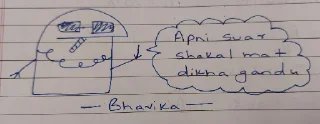 Apni suar
shakal mat
dikha gandu
— Bhavika —